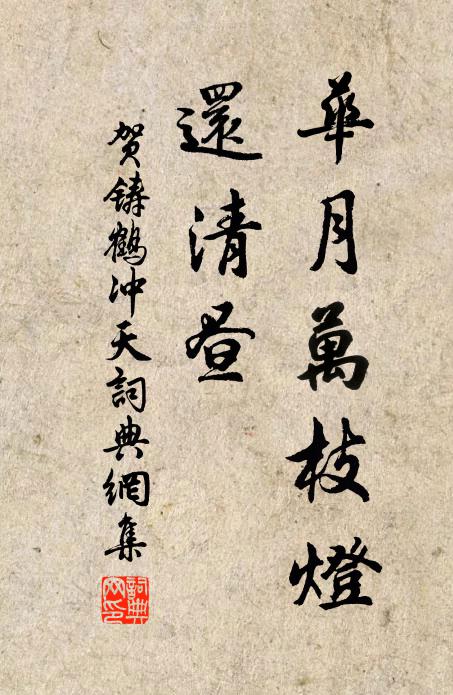 華月萬枝燈
還清晝
贺鑄鶴冲天詞典網集
詞典网印